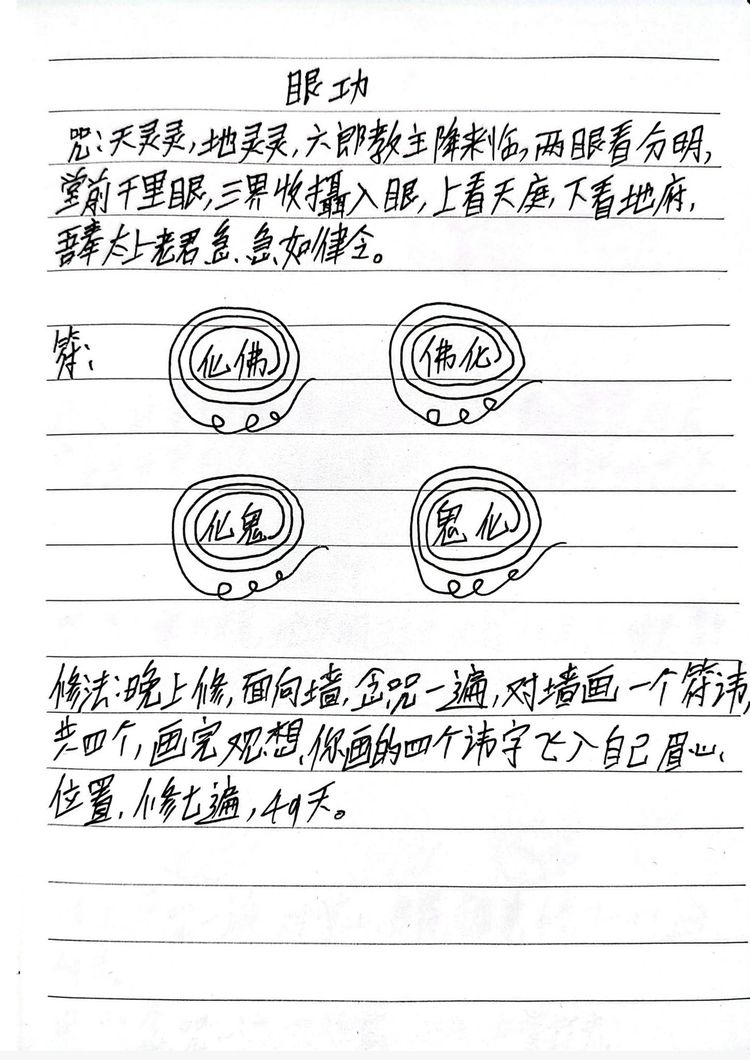 眼功
咒:天灵灵,地灵灵,六郎教主降来临,两眼看分明,
堂前千里眼,三界收攝入眼,上看天庭,下看地府,
吾奉太上老君急急如律令。
符:
化佛 佛化
化鬼 鬼化
修法:晚上修,面向墙,念咒一遍,对墙画一个符讳,
共四个,画完观想,你画的四个讳字飞入自己眉心,
位置,修七遍,49天。